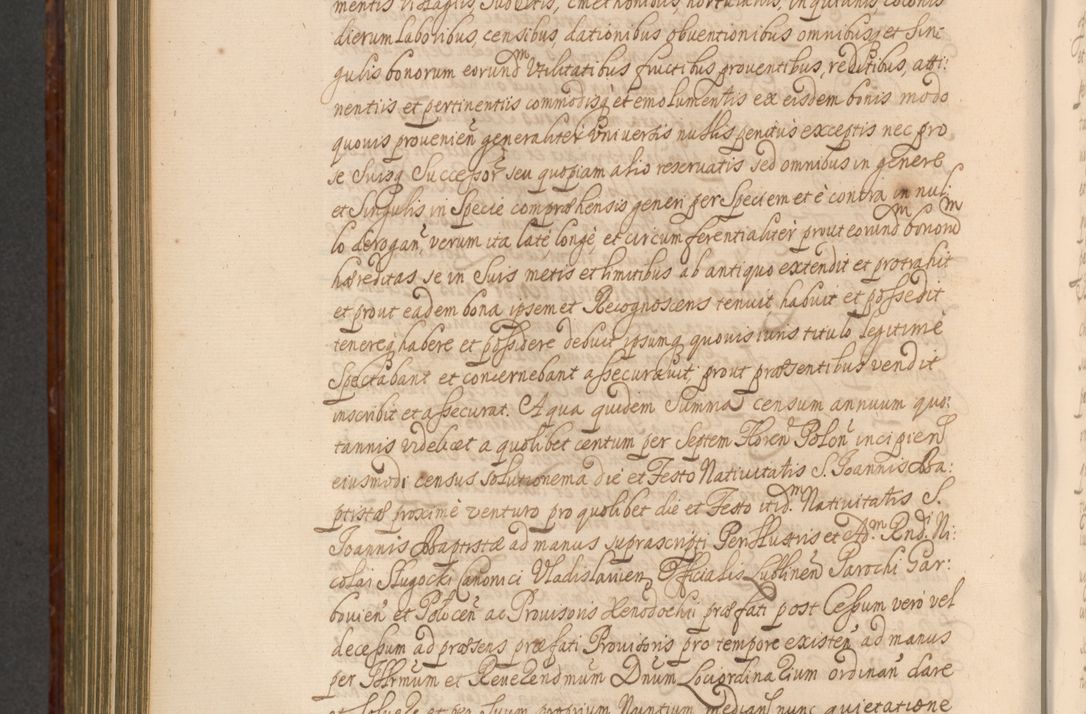 mentis Villagijs, Subditis, Cmethonibus hortulanis, inquilinis colonis
dierum laboribus, censibus, dationibus obventionibus omnibusq et Sin-
gulis bonorum eorund^m Utilitatibus fructibus, proventibus, reditibus, atti-
nentiis et pertinentiis commodisq et emolumentis ex eisdem bonis modo
quovis provenien generaliter Universis nullis penitus exceptis nec pro
se Suisq Successor seu quopiam alio reservatis sed omnibus in genere
et Singulis in Specie compræhensis generi per Speciem et è contra in nul-
lo derogan, verum ita latè longè, et circumferentialiter prout eorund^m bonor^m
hæreditas, se in Suis metis et limitibus ab antiquo extendit et protrahit
et prout eadem bona ipsemet Recognoscens tenuit habuit et possedit
tenereq habere et possidere debuit ipsumq quovis iuris titulo legitimè
Spectabant et concernebant assecuravit, prout præsentibus vendit
inscribit et assecurat. A qua quidem Summa censum annuum quo-
tannis videlicet a quolibet centum per Septem Floren Polon incipien
eiusmodi census solutionem a die et Festo Nativitatis S. Joannis Ba-
ptistæ proximè venturo pro quolibet die et Festo itid^m Nativitatis S.
Joannis Baptistæ ad manus suprascripti Perillustris et A^m. Rnd^i. Ni-
colai Sługocki Canonici Vladislavien, Officialis Lublinen Parochi Gar-
bovien et Polocen ac Provisoris Xenodochii præfati post Cessum verò vel
decessum ad præsens præfati Provisoris pro tempore existen ad manus
per Illrmum et Reverendmum Dnum Lociordinarium ordinan dare
et Solvere et per Suum proprium Nuntium median nunc quietatione